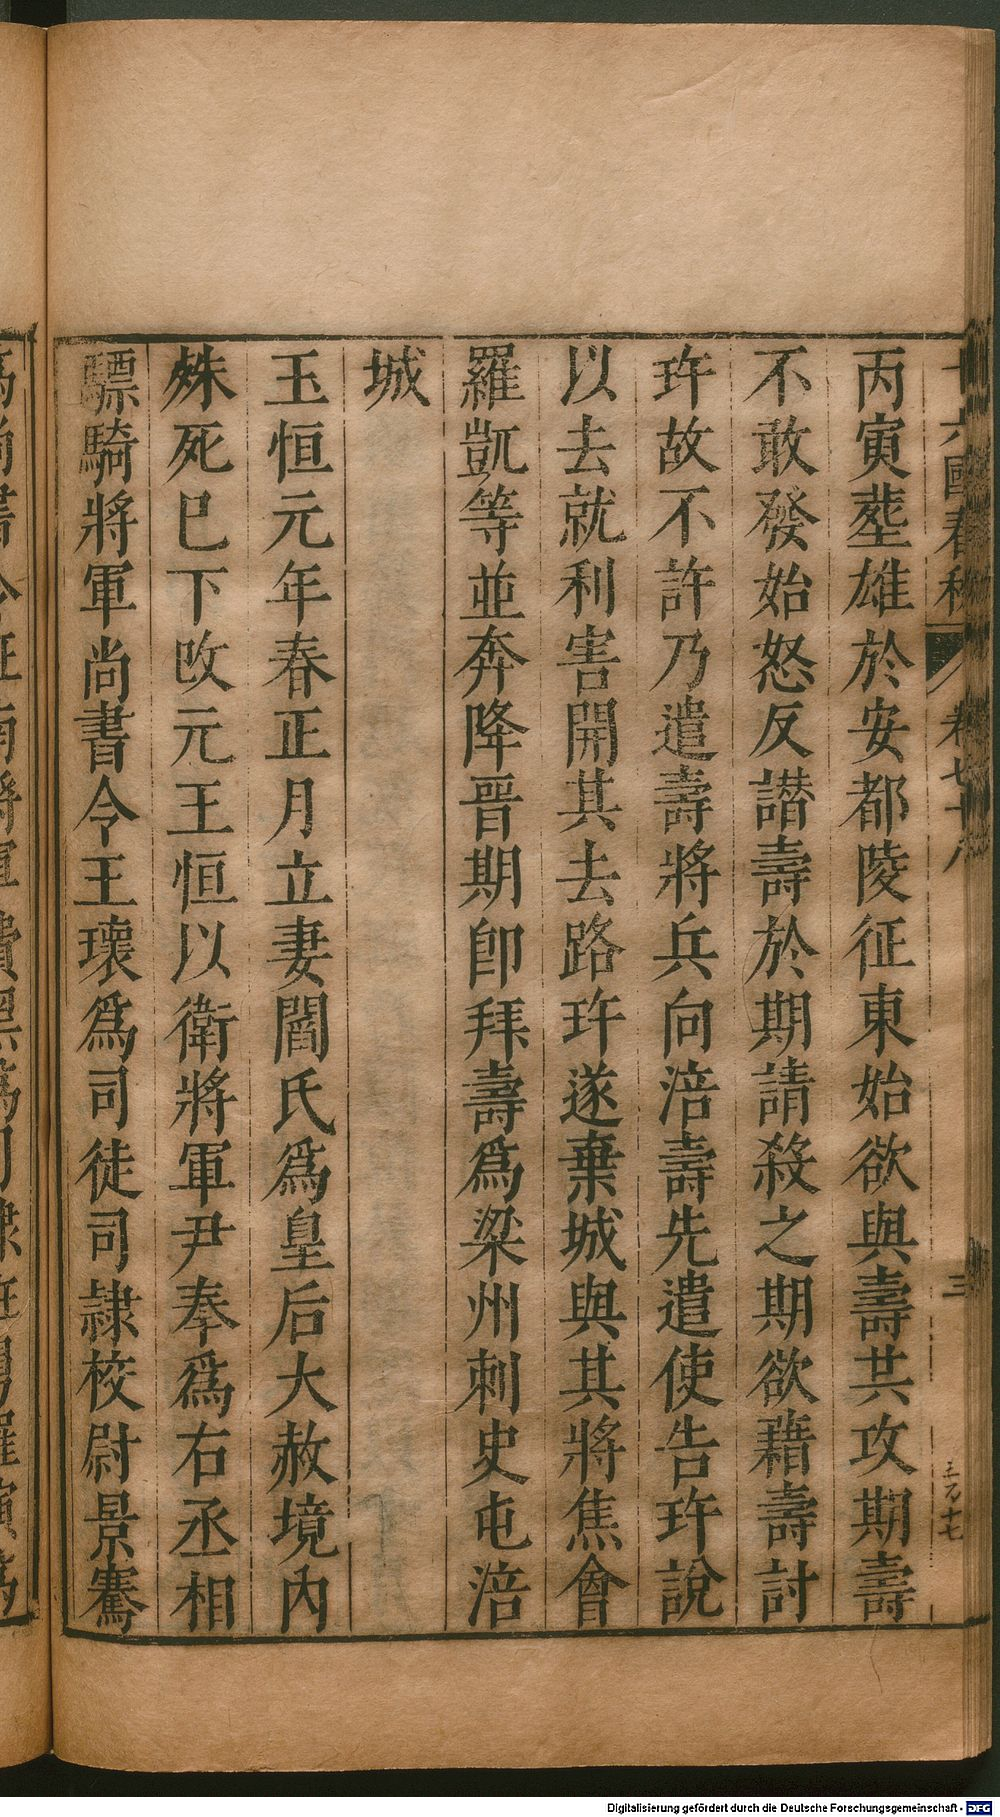 十六國春秋 卷七十八 三
丙寅塟雄於安都陵征東始欲與壽共攻期壽
不敢發始怒反譖壽於期請殺之期欲藉壽討
玝故不許乃遣壽將兵向涪壽先遣使告玝說
以去就利害開其去路玝遂棄城與其將焦會
羅凱等並奔降晉期卽拜壽爲梁州刺史屯涪
城
玉恒元年春正月立妻閻氏爲皇后大赦境內
殊死巳下改元王恒以衛將軍尹奉爲右丞相
驃騎將軍尚書令王瓌爲司徒司隷校尉景騫
Digitalisierung gefördert durch die Deutsche Forschungsgemeinschaft - DFG